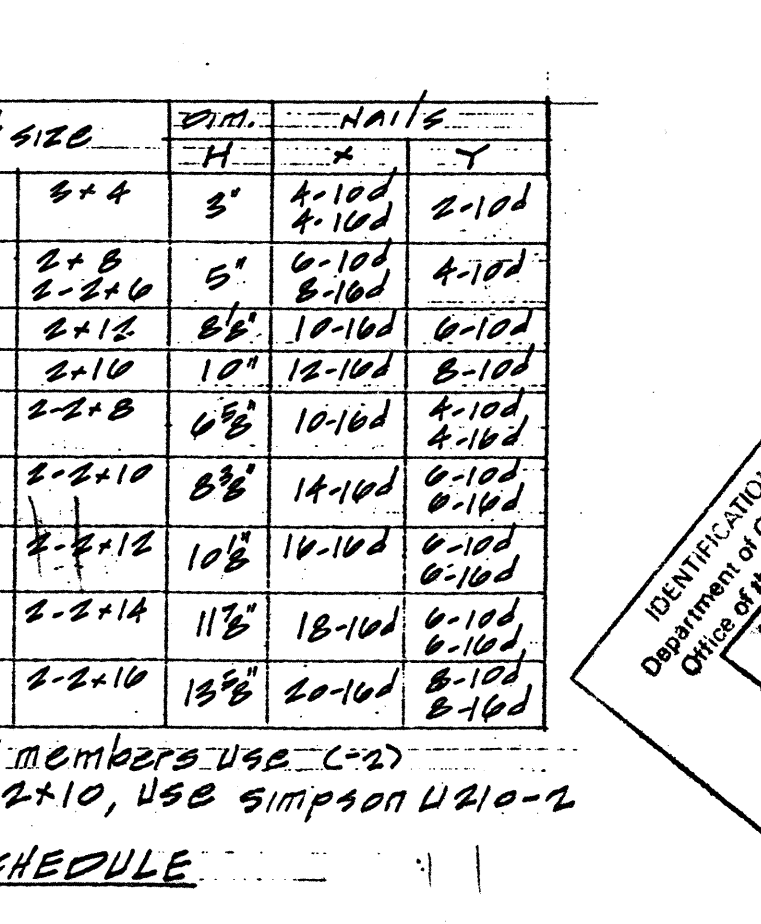 Dim. Nails
SIZE
H X Y
3x4 3" 4-10d 2-10d
4-16d
2x8 5" 6-10d 4-10d
2-2x6 8-16d
2x12 8 1/8" 10-16d 6-10d
2x16 10" 12-16d 8-10d
2-2x8 6 5/8" 10-16d 4-10d
4-16d
2-2x10 8 3/8" 14-16d 6-10d
6-16d
2-2x12 10 1/8" 16-16d 6-10d
6-16d
2-2x14 11 7/8" 18-16d 6-10d
6-16d
2-2x16 13 5/8" 20-16d 8-10d
8-16d
members use (-2)
2x10, use simpson U210-2
CHEDULE
IDENTIFICATION
Department of
Office of th